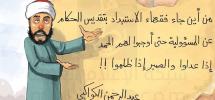 من أين جاء فقهاء الاستبداد بتقديس الحكام
عن المسؤولية حتى أوجبوا لهم الحمد
إذا عدلوا والصبر إذا ظلموا !!
عبدالرحمن الكواكبي